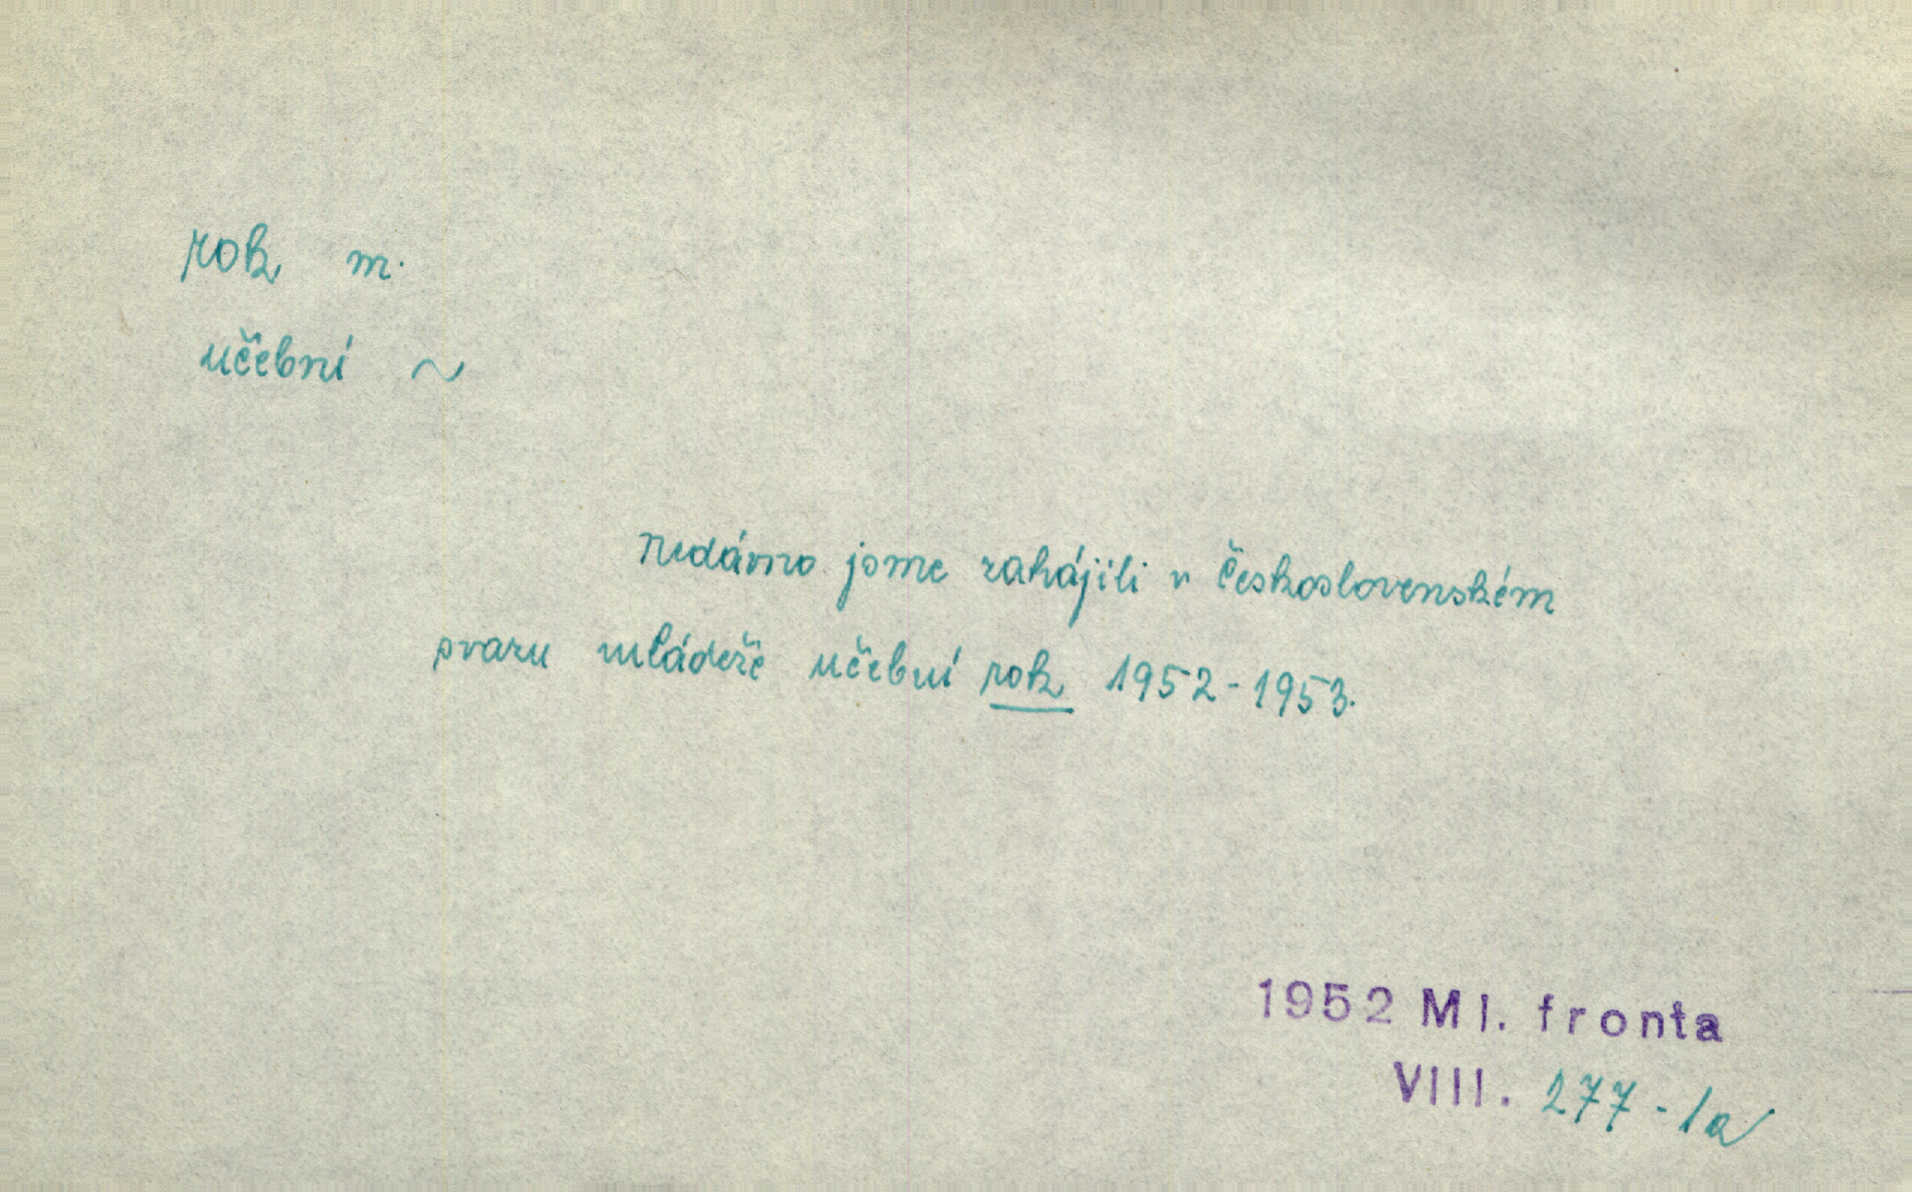 rok m.
učební ~
Nedávno jsme zahájili v Československém
svazu mládeže učební rok 1952-1953.
1952 Ml. fronta
VIII. 277-1a